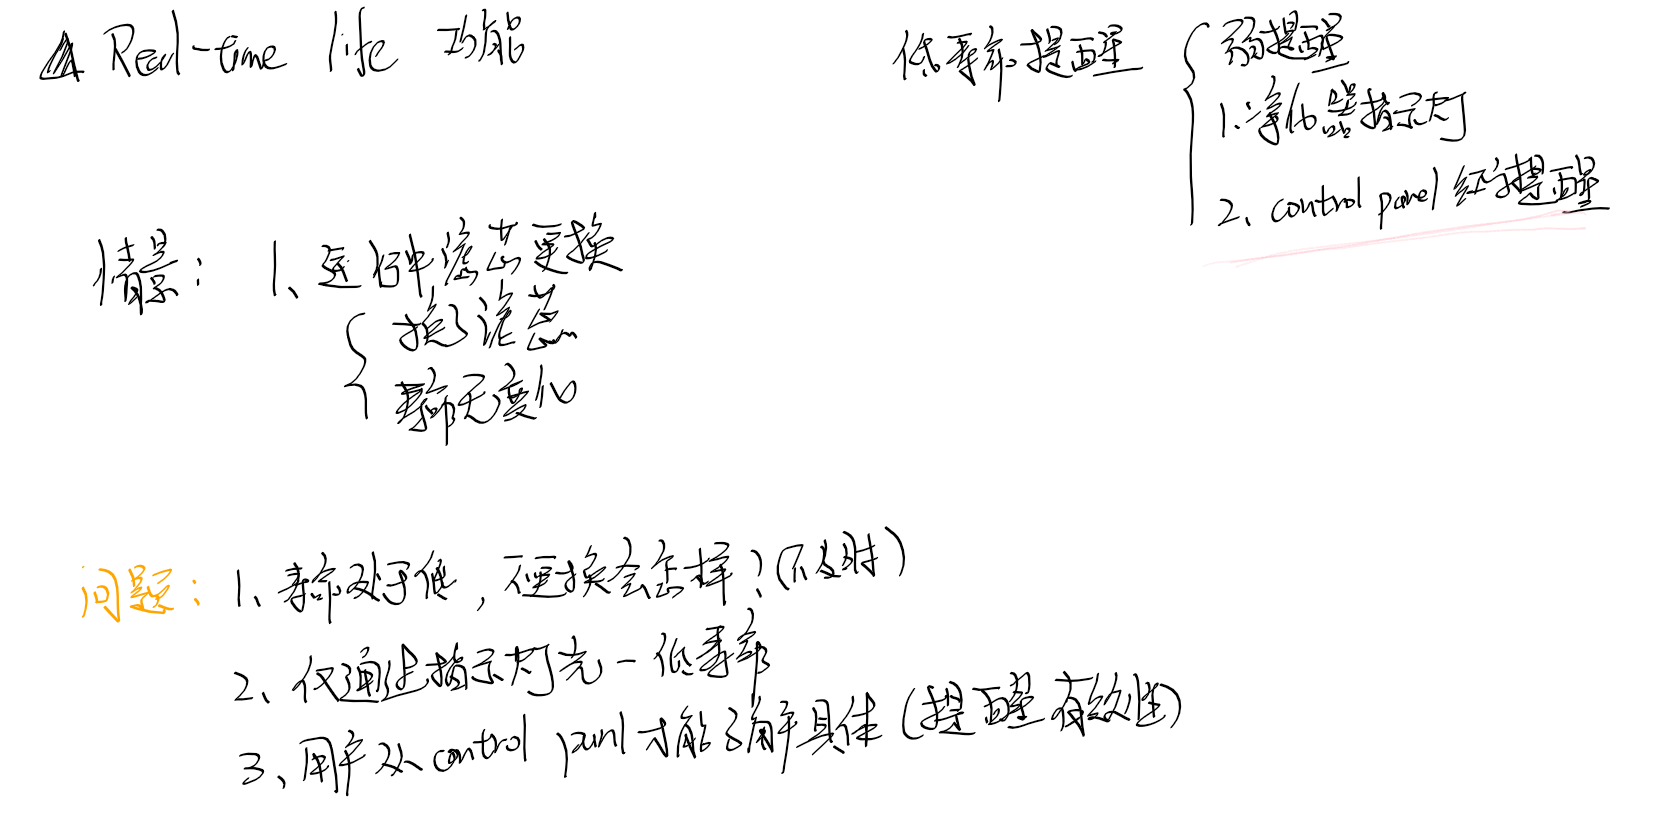 Real-time life 功能
低寿命提醒
弱提醒
1、净化器指示灯
2、control panel 红字提醒
情景：1、运行中滤芯更换
换了滤芯
寿命无变化
问题：1、寿命处于低，不更换会怎样？（不及时）
2、仅通过指示灯光－低寿命
3、用户从control panel才能了解具体（提醒有效性）